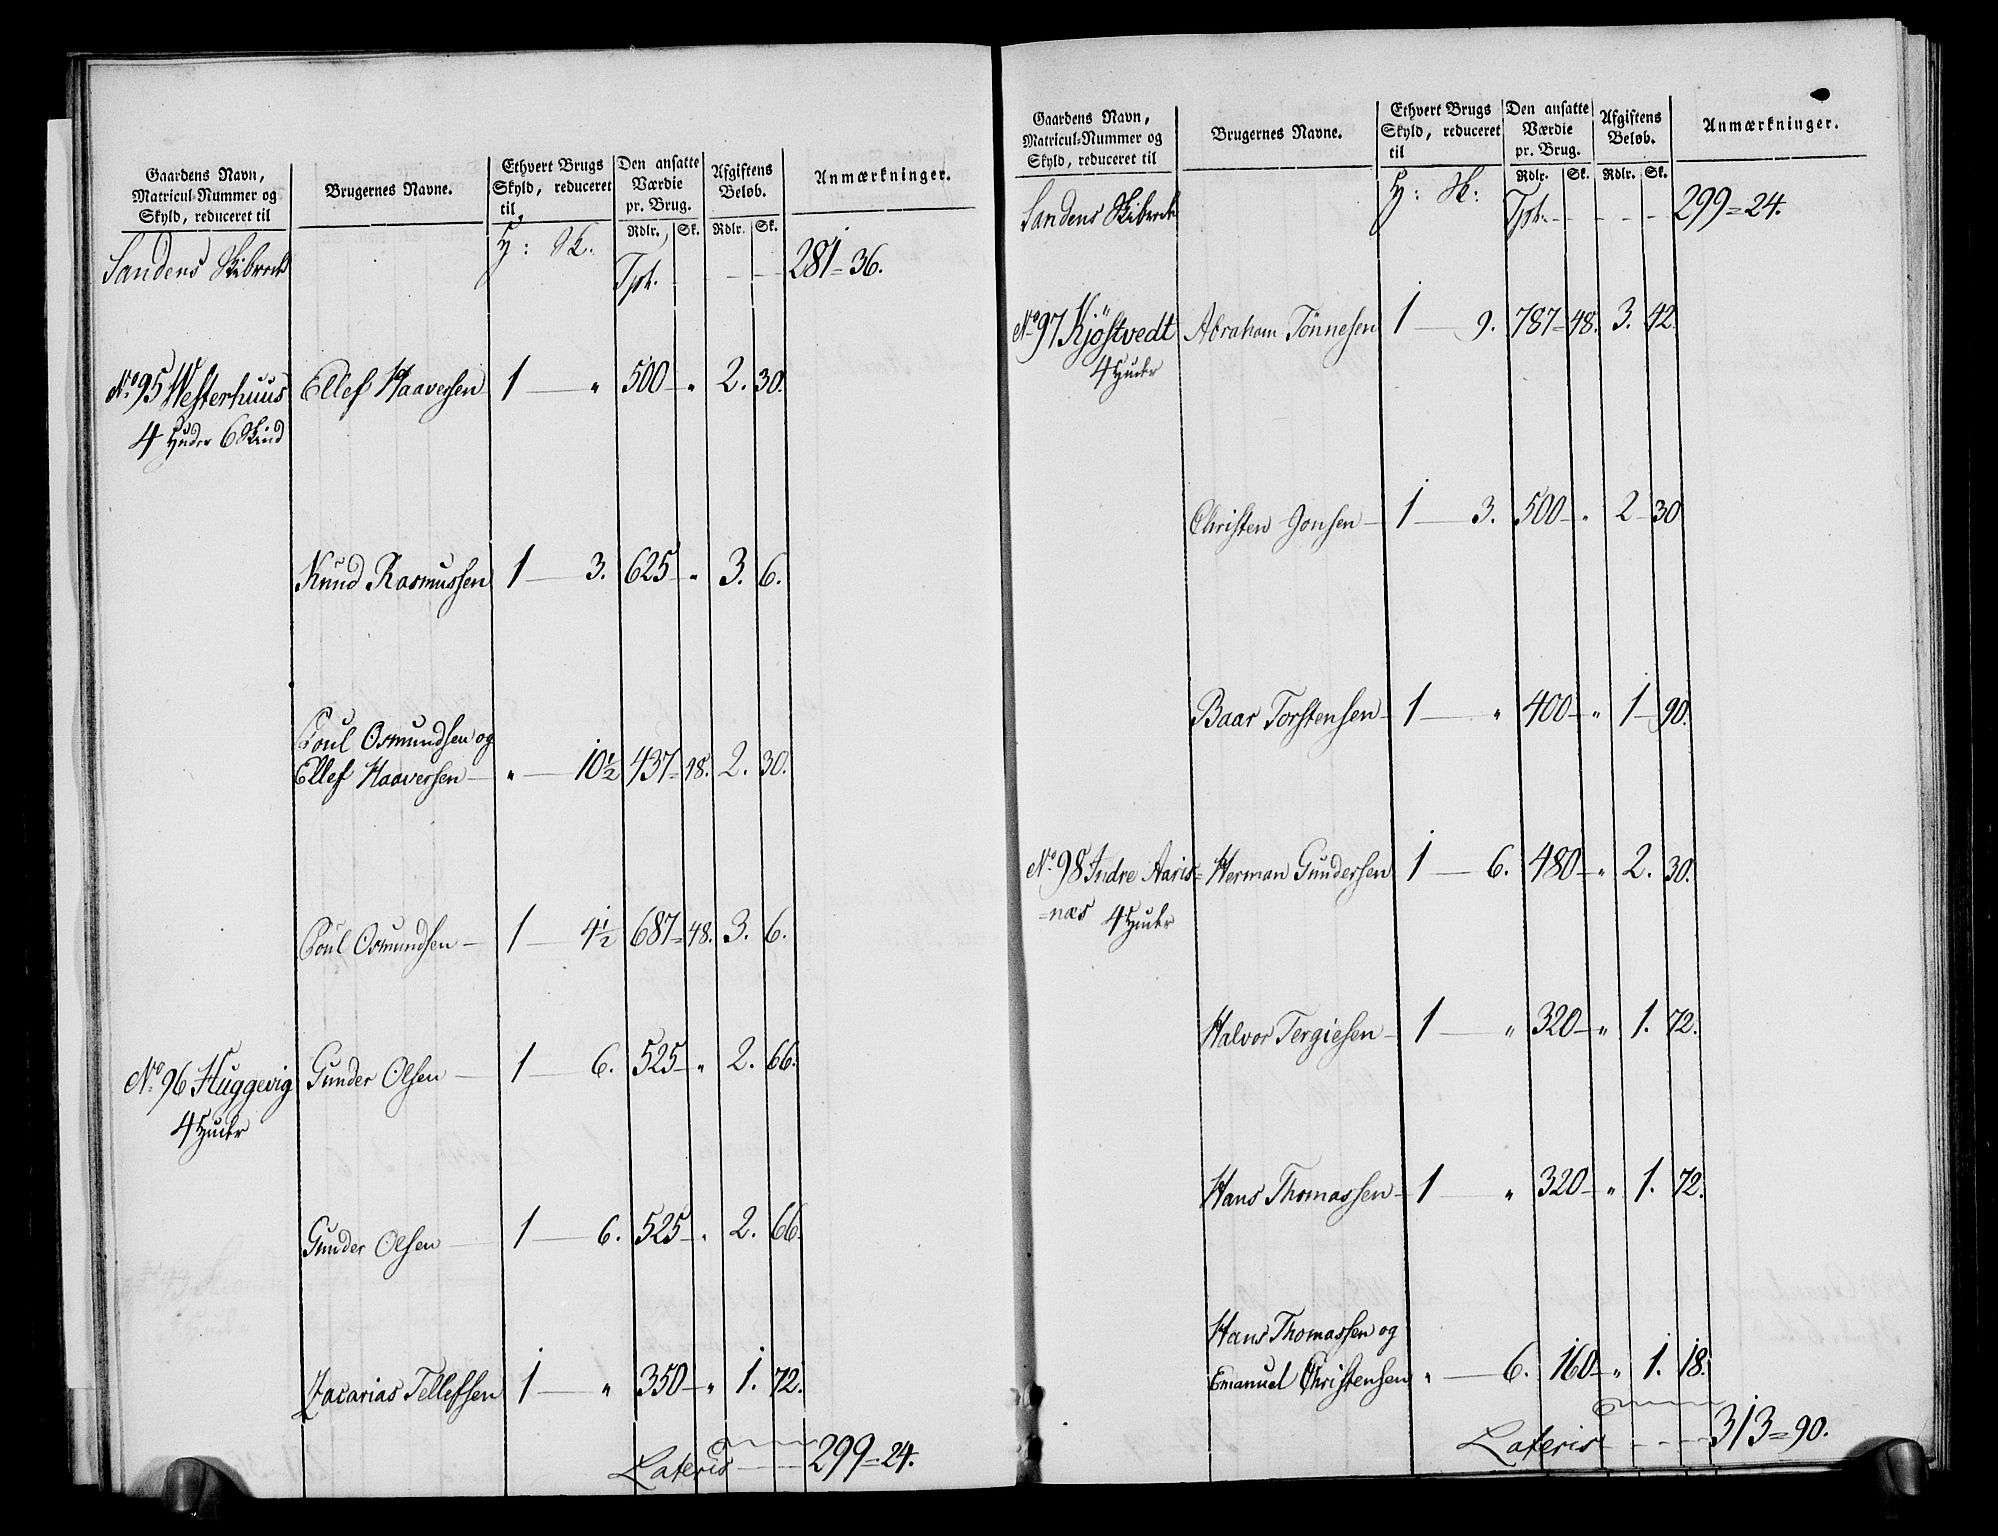 Gaardens Navn, Matricul-Nummer og Skyld, reduceret til | Brugernes Navne. | Ethvert Brugs Skyld, reduceret til | Den ansatte Værdie pr. Brug. | Afgiftens Beløb. | Anmærkninger.
Rdlr. | Sk. | Rdlr. | Sk.
Sandens Skibrede | H: Sk. | Tpt. | 281 = 36.
No. 95 Westerhuus | Ellef Haaversen | 1 — " | 500 — " | 2. 30.
4 Huder 6 Skind
Knud Rasmussen | 1 — 3. | 625 — " | 3. 6.
Poul Osmundsen og
Ellef Haaversen — | " — 10½ | 437 = 48. | 2. 30.
Poul Osmundsen — | 1 — 4½ | 687 = 48. | 3. 6.
No. 96 Huggevig | Gunder Olsen — | 1 — 6. | 525 — " | 2. 66.
4 Huder
Gunder Olsen — | 1 — 6. | 525 — " | 2. 66.
Zacarias Tellefsen | 1 — " | 350 — " | 1. 72.
Lateris — 299 = 24.
Gaardens Navn, Matricul-Nummer og Skyld, reduceret til | Brugernes Navne. | Ethvert Brugs Skyld, reduceret til | Den ansatte Værdie pr. Brug. | Afgiftens Beløb. | Anmærkninger.
Rdlr. | Sk. | Rdlr. | Sk.
Sandens Skibrede | H: Sk: | Tpt. | 299 = 24.
No. 97 Kjöstvedt | Abraham Tönnesen | 1 — 9. | 787 = 48. | 3. 42.
4 Huder
Christen Jonsen — | 1 — 3. | 500 — " | 2 — 30
Baar Torstensen — | 1 — " | 400 — " | 1 — 90.
No. 98 Indre Aaris= | Herman Gundersen | 1 — 6. | 480 — " | 2. 30.
=næs 4 Huder
Halvor Tergiesen — | 1 — " | 320 — " | 1. 72.
Hans Thomassen — | 1 — " | 320 — " | 1. 72.
Hans Thomassen og
Emanuel Christensen | " — 6. | 160 — " | 1. 18.
Lateris — 313 = 90.